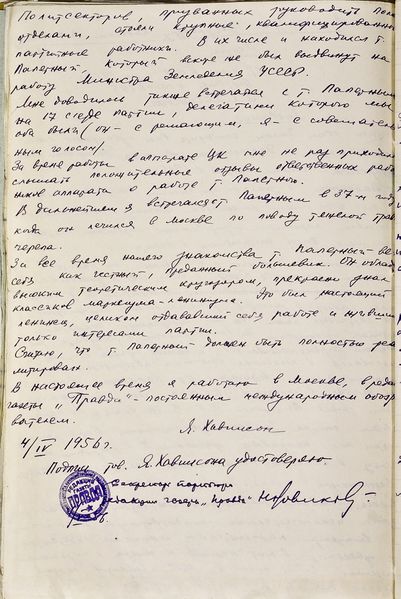 Политсекторов, призванных руководить полит
отделами, стояли крупные, квалифицированные
партийные работники. В их числе и находился т.
Паперный, который вскоре же был выдвинут на
работу Министра Земледелия УССР.
Мне доводилось также встречаться с т. Паперным
на 17 съезде партии, делегатами которого мы
оба были (он - с решающим, я - с совещатель
ным голосом).
За время работы в аппарате ЦК мне не раз приходилось
слышать положительные отзывы ответственных работ
ников аппарата о работе т. Паперного.
В дальнейшем я встречался с Паперным в 37-м году,
когда он лечился в Москве по поводу тяжелой травмы
черепа.
За все время нашего знакомства т. Паперный вел
себя как честный, преданный большевик. Он обладал
высоким теоретическим кругозором, прекрасно знал
классиков марксизма-ленинизма. Это был настоящий
ленинец, целиком отдававший себя работе и живший
только интересами партии.
Считаю, что т. Паперный должен быть полностью реаби
литирован.
В настоящее время я работаю в Москве, в редакции
газеты „Правда" - постоянным международным обозре
вателем.
Я. Хавинсон
4/IV 1956 г.
Подпись тов. Я. Хавинсона удостоверяю.
Секретарь парткома
редакции газеты „Правда" Новиков
ПРАВДА